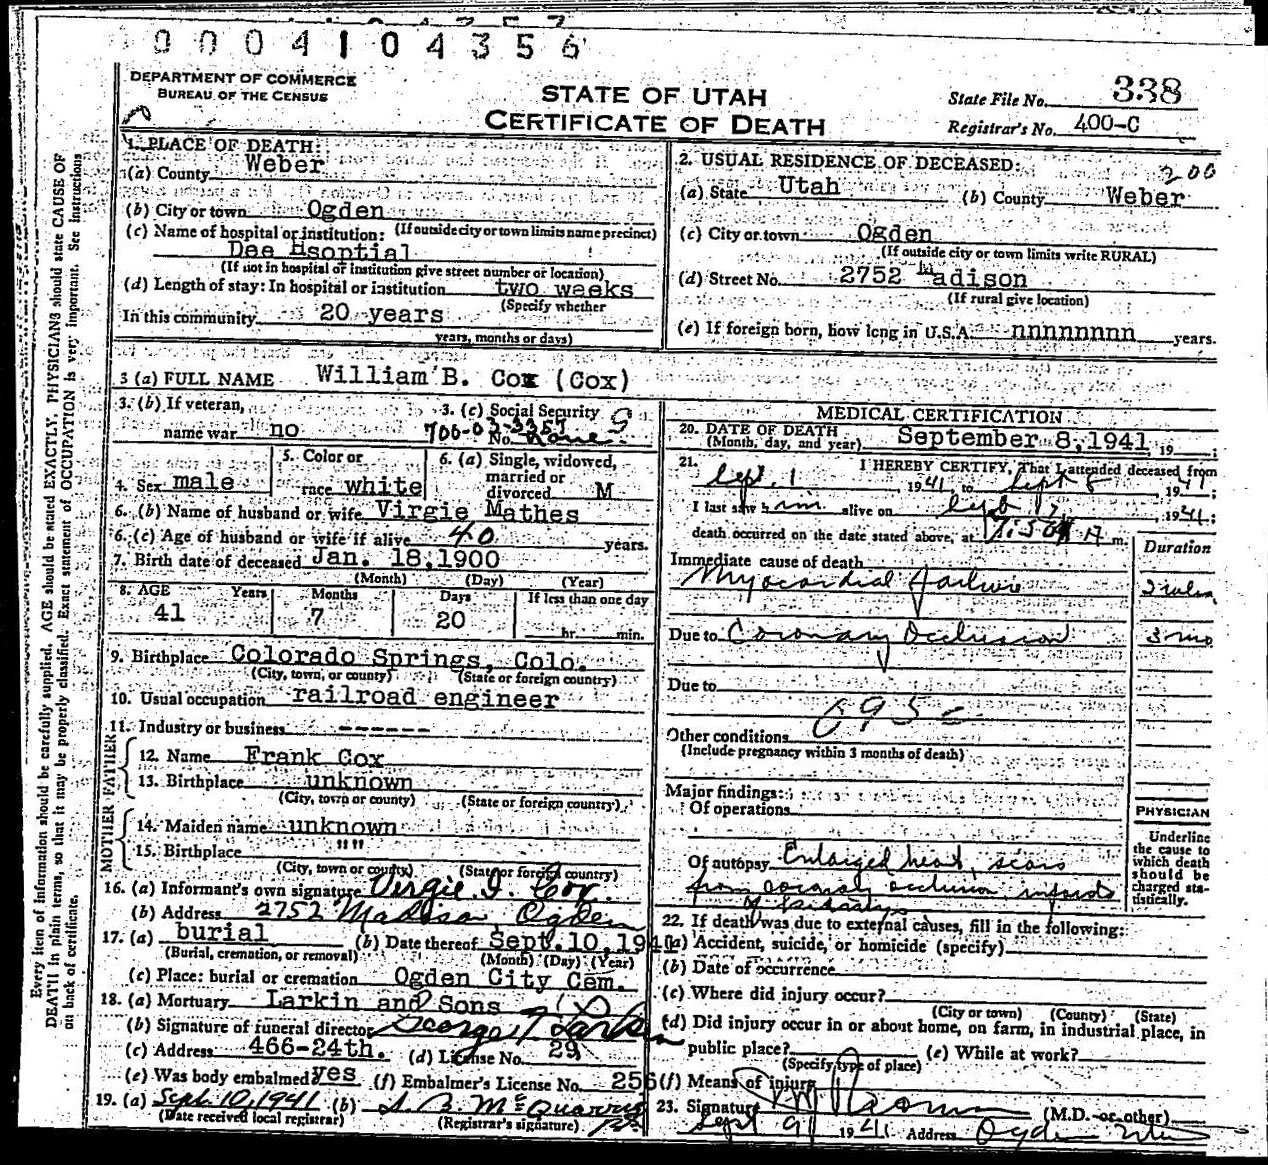 0004104356
DEPARTMENT OF COMMERCE
BUREAU OF THE CENSUS
STATE OF UTAH
CERTIFICATE OF DEATH
State File No. 338
Registrar's No. 400-C
1. PLACE OF DEATH:
(a) County Weber
(b) City or town Ogden
(c) Name of hospital or institution: (If outside city or town limits name precinct)
Dee Hsoptial
(If not in hospital or institution give street number or location)
(d) Length of stay: In hospital or institution two weeks
(Specify whether
In this community 20 years
years, months or days)
2. USUAL RESIDENCE OF DECEASED: 200
(a) State Utah (b) County Weber
(c) City or town Ogden
(If outside city or town limits write RURAL)
(d) Street No. 2752 Madison
(If rural give location)
(e) If foreign born, how long in U.S.A. nnnnnnnnn years.
3 (a) FULL NAME William B. Cox (Cox)
3. (b) If veteran,
name war no
3. (c) Social Security
No. None
4. Sex male
5. Color or
race white
6. (a) Single, widowed,
married or
divorced M
6. (b) Name of husband or wife Virgie Mathes
6. (c) Age of husband or wife if alive 40 years.
7. Birth date of deceased Jan. 18, 1900
(Month) (Day) (Year)
8. AGE Years Months Days If less than one day
41 7 20 hr. min.
9. Birthplace Colorado Springs, Colo.
(City, town, or county) (State or foreign country)
10. Usual occupation railroad engineer
11. Industry or business ------
FATHER
12. Name Frank Cox
13. Birthplace unknown
(City, town or county) (State or foreign country)
MOTHER
14. Maiden name unknown
15. Birthplace """
(City, town or county) (State or foreign country)
16. (a) Informant's own signature Virgie I. Cox
(b) Address 2752 Madison Ogden
17. (a) burial (b) Date thereof Sept. 10, 1941
(Burial, cremation, or removal) (Month) (Day) (Year)
(c) Place: burial or cremation Ogden City Cem.
18. (a) Mortuary Larkin and Sons
(b) Signature of funeral director George Larkin
(c) Address 466-24th. (d) License No. 29
(e) Was body embalmed yes (f) Embalmer's License No. 256
19. (a) Sept. 10, 1941 (b) McQuarrie
(Date received local registrar) (Registrar's signature)
MEDICAL CERTIFICATION
20. DATE OF DEATH
(Month, day, and year) September 8, 1941, 19 ;
21. I HEREBY CERTIFY, That I attended deceased from
Sept. 1, 1941 to Sept 8, 1941;
I last saw him alive on Sept 1941;
death occurred on the date stated above, at A m.
Duration
Immediate cause of death
Myocardial failure
Due to Coronary Occlusion 3 mo
Due to
Other conditions
(Include pregnancy within 3 months of death)
Major findings:
Of operations
Of autopsy Enlarged heart, scars
from coronary occlusion, infarcts
PHYSICIAN
Underline
the cause to
which death
should be
charged sta-
tistically.
22. If death was due to external causes, fill in the following:
(a) Accident, suicide, or homicide (specify)
(b) Date of occurrence
(c) Where did injury occur?
(City or town) (County) (State)
(d) Did injury occur in or about home, on farm, in industrial place, in
public place? (e) While at work?
(Specify type of place)
(f) Means of injury
23. Signature (M.D. or other)
Sept 9 1941 Address Ogden Utah
Every item of information should be carefully supplied. AGE should be stated EXACTLY. PHYSICIANS should state CAUSE OF
DEATH in plain terms, so that it may be properly classified. Exact statement of OCCUPATION is very important. See instructions
on back of certificate.